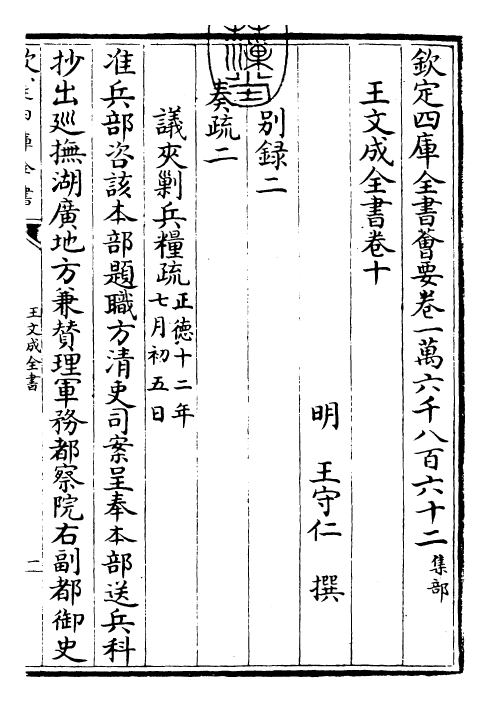 欽定四庫全書薈要卷一萬六千八百六十二 集部
王文成全書卷十
明 王守仁 撰
別録二
奏疏二
議夾剿兵糧疏 正德十二年七月初五日
准兵部咨該本部題職方清吏司案呈奉本部送兵科
抄出廵撫湖廣地方兼贊理軍務都察院右副都御史
王文成全書